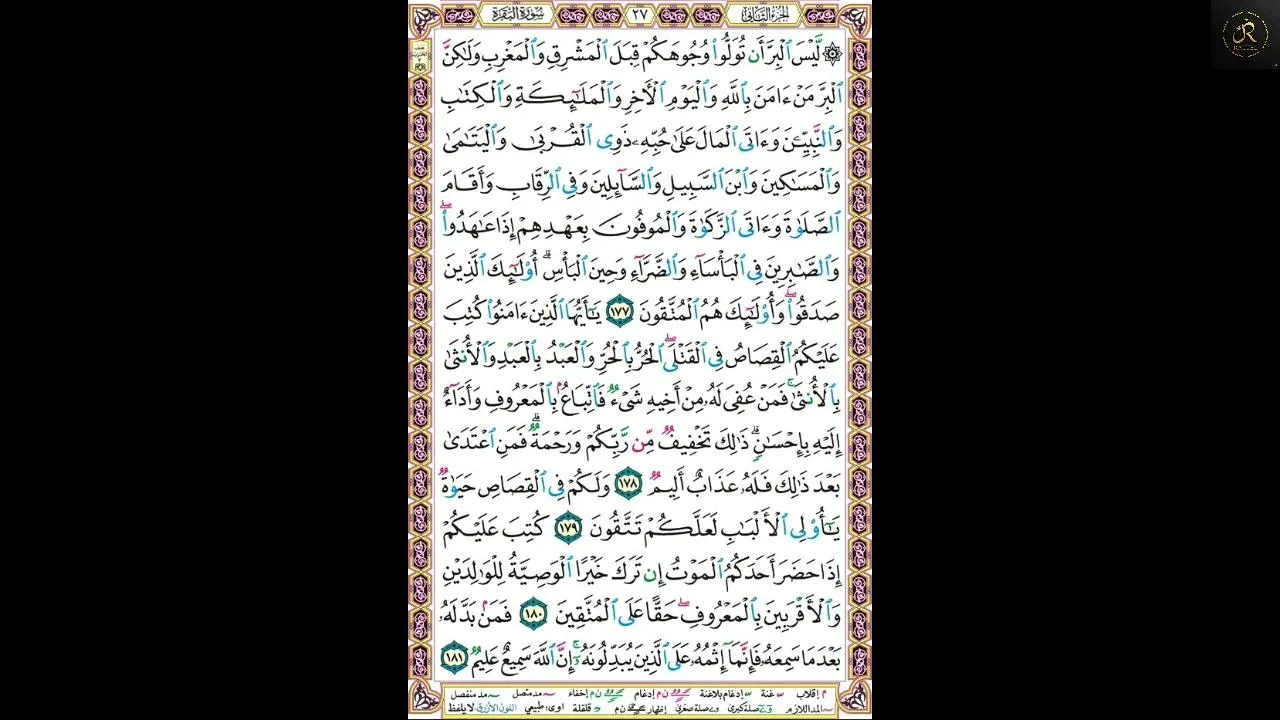 الجزء الثاني ٢٧ سورة البقرة
۞ لَّيْسَ ٱلْبِرَّ أَن تُوَلُّوا۟ وُجُوهَكُمْ قِبَلَ ٱلْمَشْرِقِ وَٱلْمَغْرِبِ وَلَٰكِنَّ
ٱلْبِرَّ مَنْ ءَامَنَ بِٱللَّهِ وَٱلْيَوْمِ ٱلْءَاخِرِ وَٱلْمَلَٰٓئِكَةِ وَٱلْكِتَٰبِ
وَٱلنَّبِيِّـۧنَ وَءَاتَى ٱلْمَالَ عَلَىٰ حُبِّهِۦ ذَوِى ٱلْقُرْبَىٰ وَٱلْيَتَٰمَىٰ
وَٱلْمَسَٰكِينَ وَٱبْنَ ٱلسَّبِيلِ وَٱلسَّآئِلِينَ وَفِى ٱلرِّقَابِ وَأَقَامَ
ٱلصَّلَوٰةَ وَءَاتَى ٱلزَّكَوٰةَ وَٱلْمُوفُونَ بِعَهْدِهِمْ إِذَا عَٰهَدُوا۟ ۖ
وَٱلصَّٰبِرِينَ فِى ٱلْبَأْسَآءِ وَٱلضَّرَّآءِ وَحِينَ ٱلْبَأْسِ ۗ أُو۟لَٰٓئِكَ ٱلَّذِينَ
صَدَقُوا۟ ۖ وَأُو۟لَٰٓئِكَ هُمُ ٱلْمُتَّقُونَ ١٧٧ يَٰٓأَيُّهَا ٱلَّذِينَ ءَامَنُوا۟ كُتِبَ
عَلَيْكُمُ ٱلْقِصَاصُ فِى ٱلْقَتْلَى ۖ ٱلْحُرُّ بِٱلْحُرِّ وَٱلْعَبْدُ بِٱلْعَبْدِ وَٱلْأُنثَىٰ
بِٱلْأُنثَىٰ ۚ فَمَنْ عُفِىَ لَهُۥ مِنْ أَخِيهِ شَىْءٌ فَٱتِّبَاعٌۢ بِٱلْمَعْرُوفِ وَأَدَآءٌ
إِلَيْهِ بِإِحْسَٰنٍ ۗ ذَٰلِكَ تَخْفِيفٌ مِّن رَّبِّكُمْ وَرَحْمَةٌ ۗ فَمَنِ ٱعْتَدَىٰ
بَعْدَ ذَٰلِكَ فَلَهُۥ عَذَابٌ أَلِيمٌ ١٧٨ وَلَكُمْ فِى ٱلْقِصَاصِ حَيَوٰةٌ
يَٰٓأُو۟لِى ٱلْأَلْبَٰبِ لَعَلَّكُمْ تَتَّقُونَ ١٧٩ كُتِبَ عَلَيْكُمْ
إِذَا حَضَرَ أَحَدَكُمُ ٱلْمَوْتُ إِن تَرَكَ خَيْرًا ٱلْوَصِيَّةُ لِلْوَٰلِدَيْنِ
وَٱلْأَقْرَبِينَ بِٱلْمَعْرُوفِ ۖ حَقًّا عَلَى ٱلْمُتَّقِينَ ١٨٠ فَمَنۢ بَدَّلَهُۥ
بَعْدَ مَا سَمِعَهُۥ فَإِنَّمَآ إِثْمُهُۥ عَلَى ٱلَّذِينَ يُبَدِّلُونَهُۥٓ ۚ إِنَّ ٱللَّهَ سَمِيعٌ عَلِيمٌ ١٨١
م إقلاب غنة إدغام بلاغنة ن م إدغام ن م إخفاء مد متصل مد منفصل
المد اللازم صلة كبرى صلة صغرى إظهار ن م قلقلة اوى: طبيعي اللون الأزرق لا يلفظ